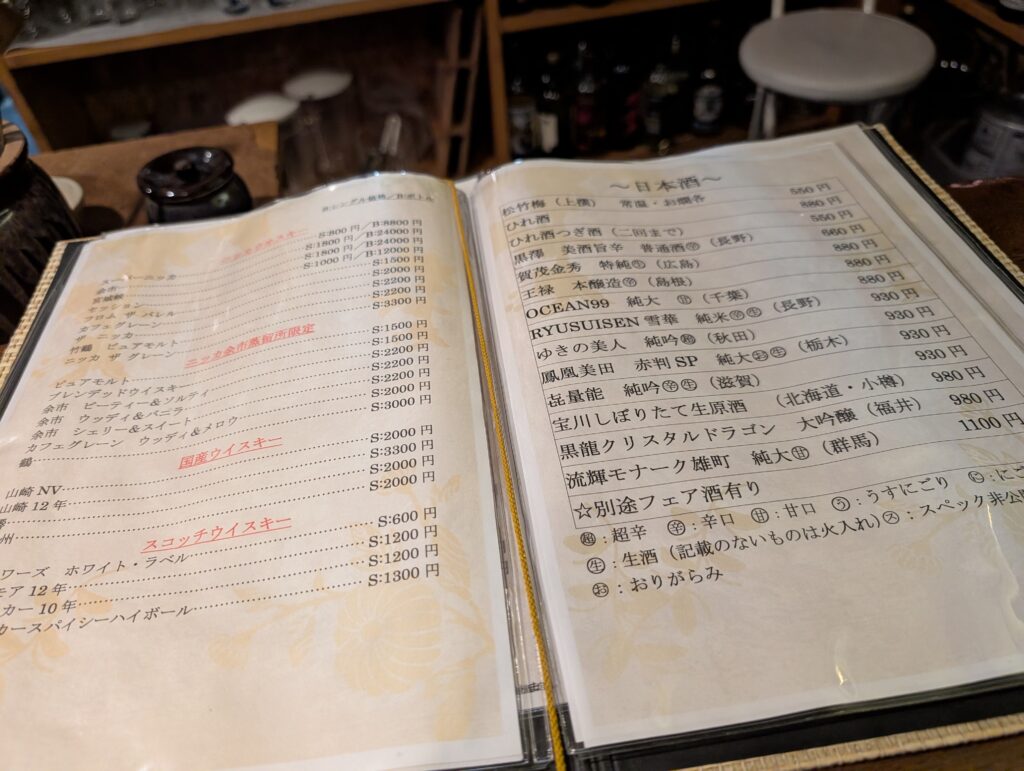 S:シングル価格／B:ボトル
ニッカウヰスキー
スーパーニッカ S:800円／B:8800円
余市 S:1800円／B:24000円
宮城峡 S:1800円／B:24000円
セッション S:1000円／B:12000円
フロム ザ バレル S:1500円
カフェグレーン S:2000円
ザ ニッカ S:2200円
竹鶴 ピュアモルト S:2200円
ニッカ ザ グレーン S:3300円
ニッカ余市蒸留所限定
ピュアモルト S:1500円
ブレンデッドウイスキー S:1500円
余市 ピーティー＆ソルティ S:2200円
余市 ウッディ＆バニラ S:2200円
余市 シェリー＆スイート S:2200円
カフェグレーン ウッディ＆メロウ S:2200円
鶴 S:3000円
国産ウイスキー
山崎NV S:2000円
山崎12年 S:3300円
S:2000円
州 S:2000円
スコッチウイスキー
ワーズ ホワイト・ラベル S:600円
モア12年 S:1200円
カー10年 S:1200円
カースパイシーハイボール S:1300円
～日本酒～
松竹梅（上撰） 常温・お燗各 550円
ひれ酒 880円
ひれ酒つぎ酒（二回まで） 550円
黒澤 美酒旨辛 普通酒㊛（長野） 660円
賀茂金秀 特純㊌（広島） 880円
王禄 本醸造（島根） 880円
OCEAN99 純大 ㊙（千葉） 880円
RYUSUISEN 雪華 純米（長野） 930円
ゆきの美人 純吟（秋田） 930円
鳳凰美田 赤判SP 純大（栃木） 930円
㐂量能 純吟（滋賀） 930円
宝川しぼりたて生原酒 （北海道・小樽） 980円
黒龍クリスタルドラゴン 大吟醸（福井） 980円
流輝モナーク雄町 純大（群馬） 1100円
☆別途フェア酒有り
超：超辛 辛：辛口 甘：甘口 う：うすにごり に：にご
生：生酒（記載のないものは火入れ）ス：スペック非公
お：おりがらみ